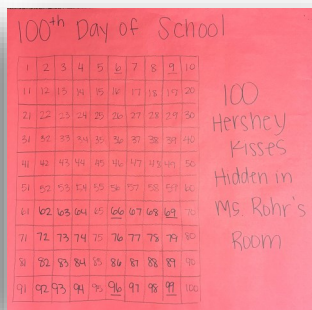 100th Day of School
1 2 3 4 5 6 7 8 9 10
11 12 13 14 15 16 17 18 19 20
21 22 23 24 25 26 27 28 29 30
31 32 33 34 35 36 37 38 39 40
41 42 43 44 45 46 47 48 49 50
51 52 53 54 55 56 57 58 59 60
61 62 63 64 65 66 67 68 69 70
71 72 73 74 75 76 77 78 79 80
81 82 83 84 85 86 87 88 89 90
91 92 93 94 95 96 97 98 99 100
100
Hershey
Kisses
Hidden in
Ms. Rohr's
Room